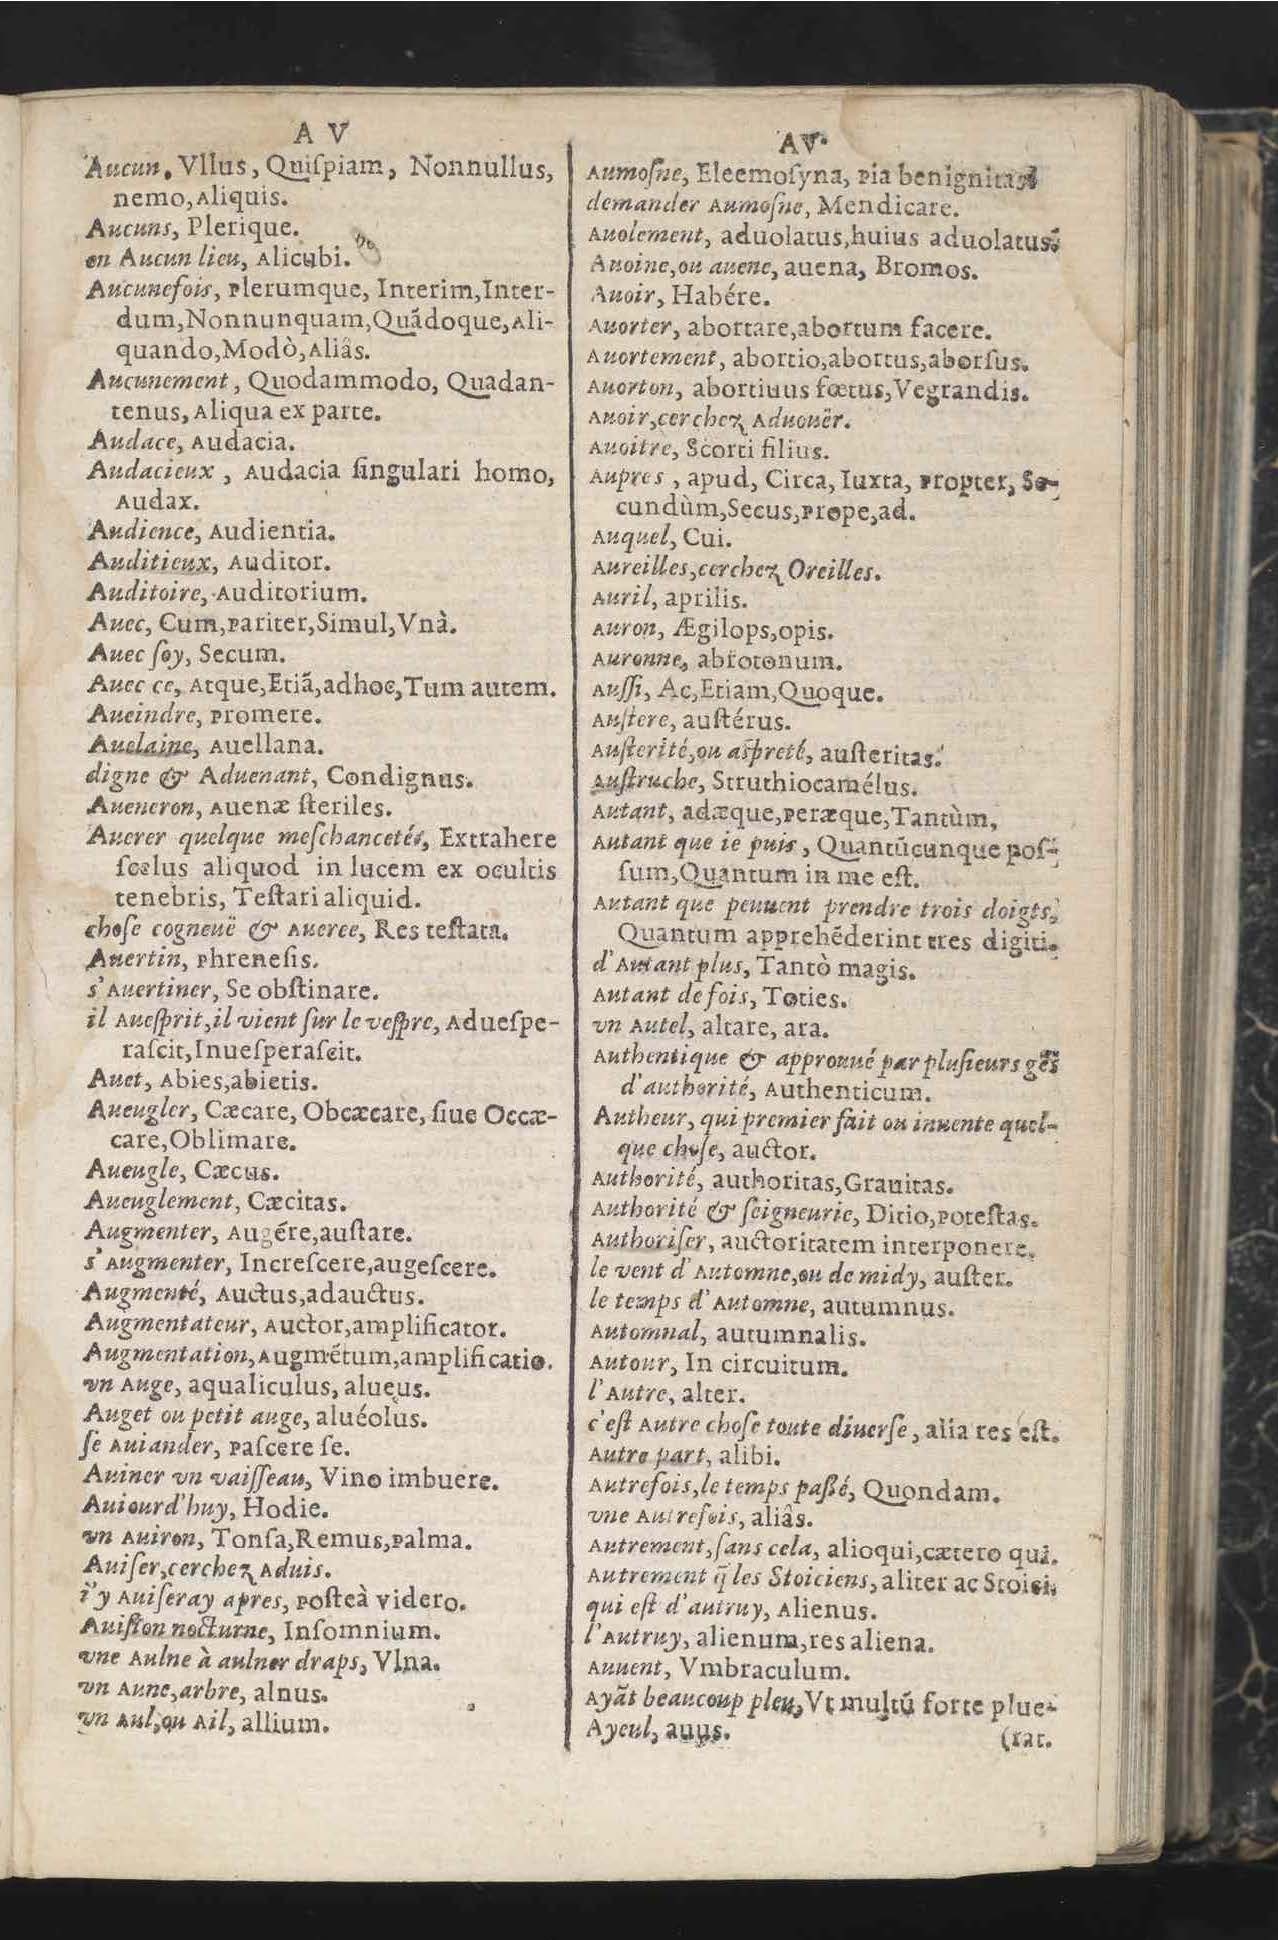 A V
Aucun. Vllus, Quiſpiam, Nonnullus,
nemo, Aliquis.
Aucuns, Plerique.
en Aucun lieu, Alicubi.
Aucunefois, Plerumque, Interim, Inter-
dum, Nonnunquam, Quãdoque, Ali-
quando, Modò, Aliâs.
Aucunement, Quodammodo, Quadan-
tenus, Aliqua ex parte.
Audace, Audacia.
Audacieux, Audacia ſingulari homo,
Audax.
Audience, Audientia.
Auditieux, Auditor.
Auditoire, Auditorium.
Auec, Cum, Pariter, Simul, Vnà.
Auec ſoy, Secum.
Auec ce, Atque, Etiã, adhoc, Tum autem.
Aueindre, Promere.
Auelaine, Auellana.
digne & Aduenant, Condignus.
Aueneron, Auenæ ſteriles.
Auerer quelque meſchancetés, Extrahere
ſcelus aliquod in lucem ex ocultis
tenebris, Teſtari aliquid.
choſe cogneuë & Aueree, Res teſtata.
Auertin, Phreneſis.
s'Auertiner, Se obſtinare.
il Aueſprit, il vient ſur le veſpre, Adueſpe-
raſcit, Inueſperaſcit.
Auet, Abies, abietis.
Aueugler, Cæcare, Obcæcare, ſiue Occæ-
care, Oblimare.
Aueugle, Cæcus.
Aueuglement, Cæcitas.
Augmenter, Augére, auſtare.
s'Augmenter, Increſcere, augeſcere.
Augmenté, Auctus, adauctus.
Augmentateur, Auctor, amplificator.
Augmentation, Augmẽtum, amplificatio.
vn Auge, aqualiculus, alueus.
Auget ou petit auge, aluéolus.
ſe Auiander, Paſcere ſe.
Auiner vn vaiſſeau, Vino imbuere.
Auiourd'huy, Hodie.
vn Auiron, Tonſa, Remus, Palma.
Auiſer, cerchez Aduis.
i'y Auiſeray apres, Poſteà videro.
Auiſion nocturne, Inſomnium.
vne Aulne à aulner draps, Vlna.
vn Aune, arbre, alnus.
vn Aul, ou Ail, allium.
AV.
Aumoſne, Eleemoſyna, Pia benignitas
demander Aumoſne, Mendicare.
Auolement, aduolatus, huius aduolatus.
Auoine, ou auene, auena, Bromos.
Auoir, Habére.
Auorter, abortare, abortum facere.
Auortement, abortio, abortus, aborſus.
Auorton, abortiuus fœtus, Vegrandis.
Auoir, cerchez Aduouër.
Auoitre, Scorti filius.
Aupres, apud, Circa, Iuxta, Propter, Se-
cundùm, Secus, Prope, ad.
Auquel, Cui.
Aureilles, cerchez Oreilles.
Auril, aprilis.
Auron, Ægilops, opis.
Auronne, abrotonum.
Auſſi, Ac, Etiam, Quoque.
Auſtere, auſtérus.
Auſterité, ou aſpreté, auſteritas.
Auſtruche, Struthiocamélus.
Autant, adæque, Peræque, Tantùm,
Autant que ie puis, Quantũcunque poſ-
ſum, Quantum in me eſt.
Autant que peuuent prendre trois doigts,
Quantum apprehẽderint tres digiti.
d'Autant plus, Tantò magis.
Autant de fois, Toties.
vn Autel, altare, ara.
Authentique & approuué par pluſieurs gẽs
d'authorité, Authenticum.
Autheur, qui premier fait ou inuente quel-
que choſe, auctor.
Authorité, authoritas, Grauitas.
Authorité & ſeigneurie, Ditio, Poteſtas.
Authoriſer, auctoritatem interponere.
le vent d'Automne, ou de midy, auſter.
le temps d'Automne, autumnus.
Automnal, autumnalis.
Autour, In circuitum.
l'Autre, alter.
c'eſt Autre choſe toute diuerſe, alia res eſt.
Autre part, alibi.
Autrefois, le temps paſſé, Quondam.
vne Autrefois, aliâs.
Autrement, ſans cela, alioqui, cætero qui.
Autrement q̃ les Stoiciens, aliter ac Stoici.
qui eſt d'autruy, Alienus.
l'Autruy, alienum, res aliena.
Auuent, Vmbraculum.
Ayãt beaucoup pleu, Vt multũ forte plue-
Ayeul, auus. (rat.